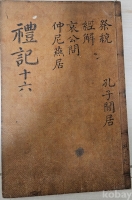 祭統
經解
哀公問
仲尼燕居
孔子閒居
禮記 十六
kobay